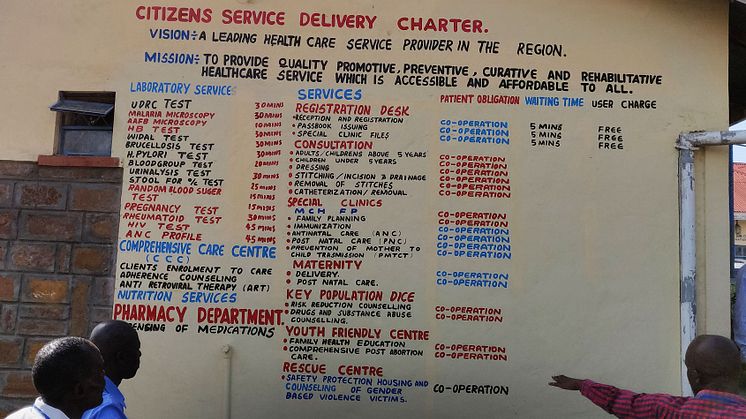 CITIZENS SERVICE DELIVERY CHARTER.
VISION÷A LEADING HEALTH CARE SERVICE PROVIDER IN THE REGION.
MISSION÷TO PROVIDE QUALITY PROMOTIVE, PREVENTIVE, CURATIVE AND REHABILITATIVE
HEALTHCARE SERVICE WHICH IS ACCESSIBLE AND AFFORDABLE TO ALL.
LABORATORY SERVICES
UDRC TEST 30MINS
MALARIA MICROSCOPY 30MINS
AAFB MICROSCOPY
HB TEST 10MINS
WIDAL TEST 30MINS
BRUCELLOSIS TEST 30MINS
H.PYLORI TEST 30MINS
BLOODGROUP TEST 20MINS
URINALYSIS TEST
STOOL FOR O/C TEST 30MINS
RANDOM BLOOD SUGER 25MINS
TEST 15MINS
PREGNANCY TEST 15MINS
RHEUMATOID TEST 30MINS
HIV TEST 45MINS
ANC PROFILE 45MINS
COMPREHENSIVE CARE CENTRE
(CCC)
CLIENTS ENROLMENT TO CARE
ADHERENCE COUNSELING
ANTI RETROVIRAL THERAPY (ART)
NUTRITION SERVICES
PHARMACY DEPARTMENT
ENSING OF MEDICATIONS
SERVICES PATIENT OBLIGATION WAITING TIME USER CHARGE
REGISTRATION DESK
• RECEPTION AND REGISTRATION CO-OPERATION 5 MINS FREE
• PASSBOOK ISSUING CO-OPERATION 5 MINS FREE
• SPECIAL CLINIC FILES CO-OPERATION 5 MINS FREE
CONSULTATION
• ADULTS/CHILDRENS ABOVE 5 YEARS CO-OPERATION
• CHILDREN UNDER 5 YEARS CO-OPERATION
• DRESSING CO-OPERATION
• STITCHING/INCISION & DRAINAGE CO-OPERATION
• REMOVAL OF STITCHES CO-OPERATION
• CATHETERIZATION/REMOVAL CO-OPERATION
SPECIAL CLINICS
MCH FP
• FAMILY PLANNING CO-OPERATION
• IMMUNIZATION CO-OPERATION
• ANTINATAL CARE (ANC) CO-OPERATION
• POST NATAL CARE (PNC) CO-OPERATION
• PREVENTION OF MOTHER TO CO-OPERATION
CHILD TRASMISSION (PMTCT) CO-OPERATION
MATERNITY
• DELIVERY. CO-OPERATION
• POST NATAL CARE. CO-OPERATION
KEY POPULATION DICE
• RISK REDUCTION COUNSELLING CO-OPERATION
• DRUGS AND SUBSTANCE ABUSE CO-OPERATION
COUNSELLING.
YOUTH FRIENDLY CENTRE
• FAMILY HEALTH EDUCATION CO-OPERATION
• COMPREHENSIVE POST ABORTION CO-OPERATION
CARE.
RESCUE CENTRE
• SAFETY PROTECTION HOUSING AND
COUNSELING OF GENDER CO-OPERATION
BASED VIOLENCE VICTIMS.